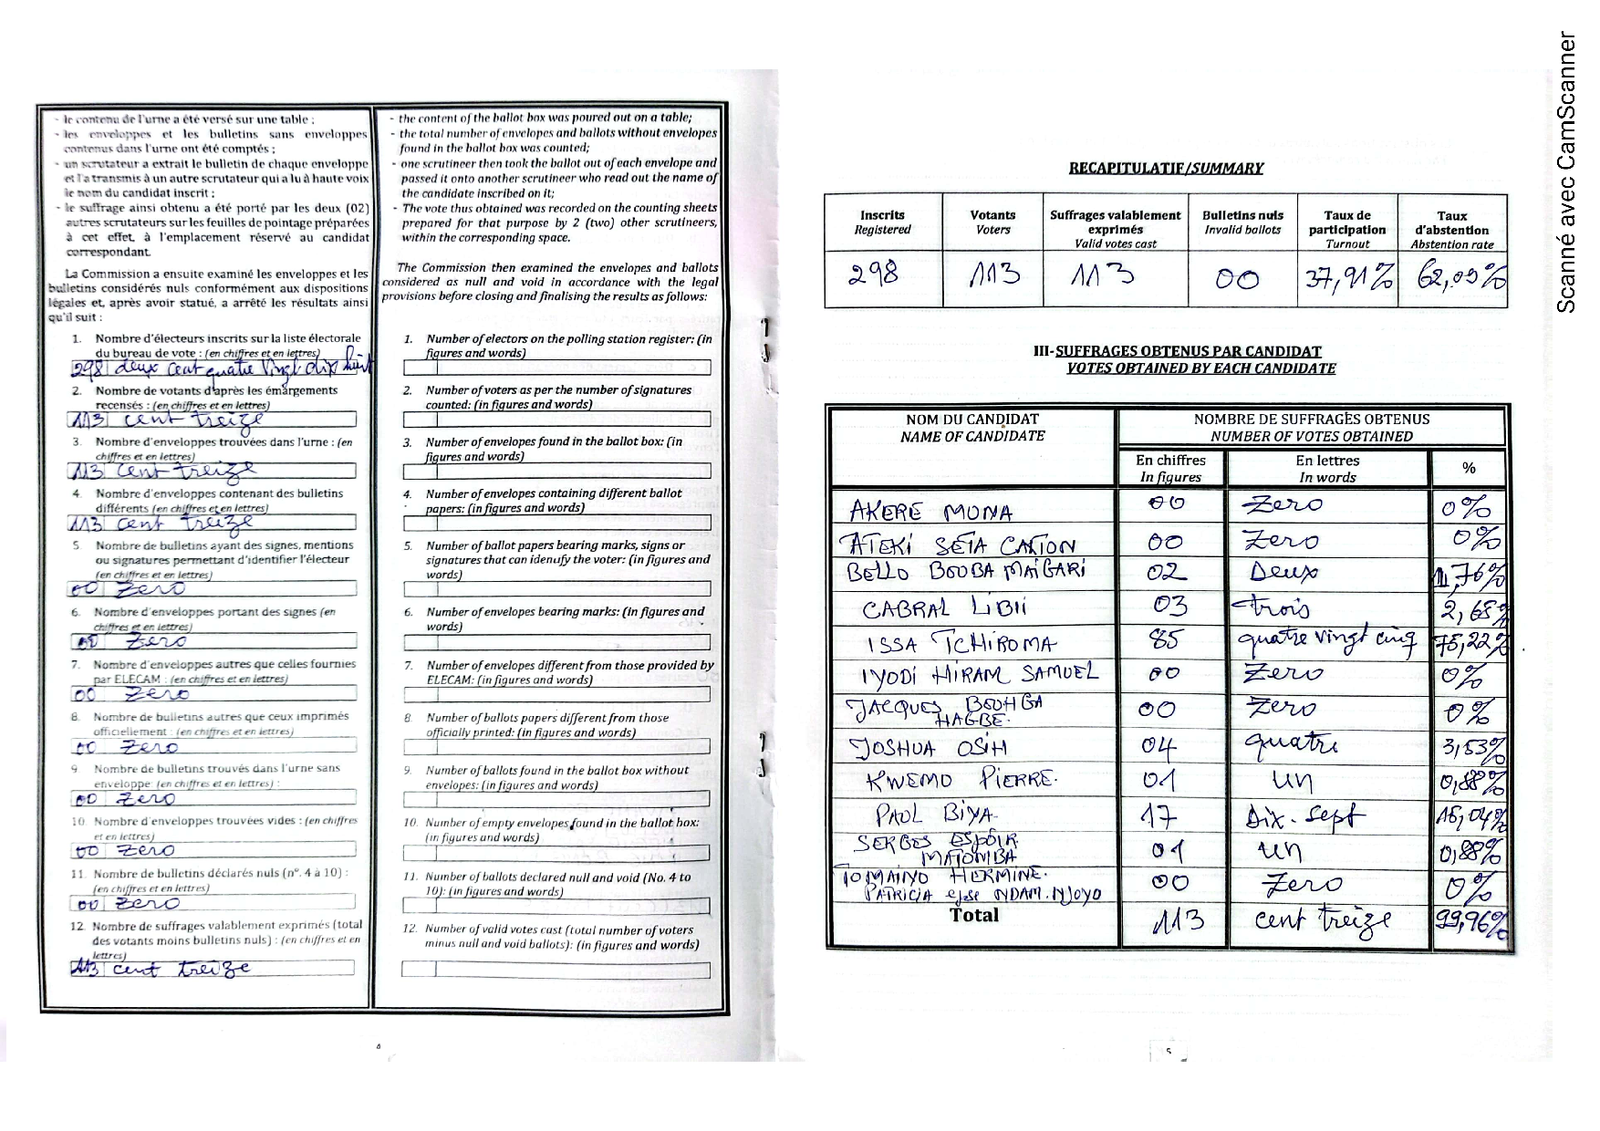 - le contenu de l'urne a été versé sur une table ;
- les enveloppes et les bulletins sans enveloppes
contenus dans l'urne ont été comptés ;
- un scrutateur a extrait le bulletin de chaque enveloppe
et l'a transmis à un autre scrutateur qui a lu à haute voix
le nom du candidat inscrit ;
- le suffrage ainsi obtenu a été porté par les deux (02)
autres scrutateurs sur les feuilles de pointage préparées
à cet effet, à l'emplacement réservé au candidat
correspondant.
La Commission a ensuite examiné les enveloppes et les
bulletins considérés nuls conformément aux dispositions
légales et, après avoir statué, a arrêté les résultats ainsi
qu'il suit :
1. Nombre d'électeurs inscrits sur la liste électorale
du bureau de vote : (en chiffres et en lettres)
298 deux cent quatre vingt dix huit
2. Nombre de votants d'après les émargements
recensés : (en chiffres et en lettres)
113 cent treize
3. Nombre d'enveloppes trouvées dans l'urne : (en
chiffres et en lettres)
113 cent treize
4. Nombre d'enveloppes contenant des bulletins
différents (en chiffres et en lettres)
113 cent treize
5. Nombre de bulletins ayant des signes, mentions
ou signatures permettant d'identifier l'électeur
(en chiffres et en lettres)
00 Zero
6. Nombre d'enveloppes portant des signes (en
chiffres et en lettres)
00 Zero
7. Nombre d'enveloppes autres que celles fournies
par ELECAM : (en chiffres et en lettres)
00 Zero
8. Nombre de bulletins autres que ceux imprimés
officiellement : (en chiffres et en lettres)
00 Zero
9 Nombre de bulletins trouvés dans l'urne sans
enveloppe: (en chiffres et en lettres) :
00 Zero
10. Nombre d'enveloppes trouvées vides : (en chiffres
et en lettres)
00 Zero
11. Nombre de bulletins déclarés nuls (n°. 4 à 10) :
(en chiffres et en lettres)
00 Zero
12. Nombre de suffrages valablement exprimés (total
des votants moins bulletins nuls) : (en chiffres et en
lettres)
113 cent treize
- the content of the ballot box was poured out on a table;
- the total number of envelopes and ballots without envelopes
found in the ballot box was counted;
- one scrutineer then took the ballot out of each envelope and
passed it onto another scrutineer who read out the name of
the candidate inscribed on it;
- The vote thus obtained was recorded on the counting sheets
prepared for that purpose by 2 (two) other scrutineers,
within the corresponding space.
The Commission then examined the envelopes and ballots
considered as null and void in accordance with the legal
provisions before closing and finalising the results as follows:
1. Number of electors on the polling station register: (in
figures and words)
2. Number of voters as per the number of signatures
counted: (in figures and words)
3. Number of envelopes found in the ballot box: (in
figures and words)
4. Number of envelopes containing different ballot
papers: (in figures and words)
5. Number of ballot papers bearing marks, signs or
signatures that can identify the voter: (in figures and
words)
6. Number of envelopes bearing marks: (in figures and
words)
7. Number of envelopes different from those provided by
ELECAM: (in figures and words)
8. Number of ballots papers different from those
officially printed: (in figures and words)
9. Number of ballots found in the ballot box without
envelopes: (in figures and words)
10. Number of empty envelopes found in the ballot box:
(in figures and words)
11. Number of ballots declared null and void (No. 4 to
10): (in figures and words)
12. Number of valid votes cast (total number of voters
minus null and void ballots): (in figures and words)
4
RECAPITULATIF/SUMMARY
Inscrits Registered | Votants Voters | Suffrages valablement exprimés Valid votes cast | Bulletins nuls Invalid ballots | Taux de participation Turnout | Taux d'abstention Abstention rate
298 113 113 00 37,91% 62,09%
III- SUFFRAGES OBTENUS PAR CANDIDAT
VOTES OBTAINED BY EACH CANDIDATE
NOM DU CANDIDAT NOMBRE DE SUFFRAGES OBTENUS
NAME OF CANDIDATE NUMBER OF VOTES OBTAINED
En chiffres En lettres %
In figures In words
AKERE MUNA 00 Zero 0%
ATEKI SETA CAXTON 00 Zero 0%
BELLO BOUBA MAIGARI 02 Deux 1,76%
CABRAL LIBII 03 trois 2,65%
ISSA TCHIROMA 85 quatre vingt cinq 75,22%
IYODI HIRAM SAMUEL 00 Zero 0%
JACQUES BOUHGA HAGBE. 00 Zero 0%
JOSHUA OSIH 04 quatre 3,53%
KWEMO PIERRE. 01 un 0,88%
PAUL BIYA. 17 Dix. sept 15,04%
SERGES ESPOIR MATOMBA 01 un 0,88%
TOMAINO HERMINE. PATRICIA epse NDAM. NJOYO 00 Zero 0%
Total 113 cent treize 99,96%
5
Scanné avec CamScanner